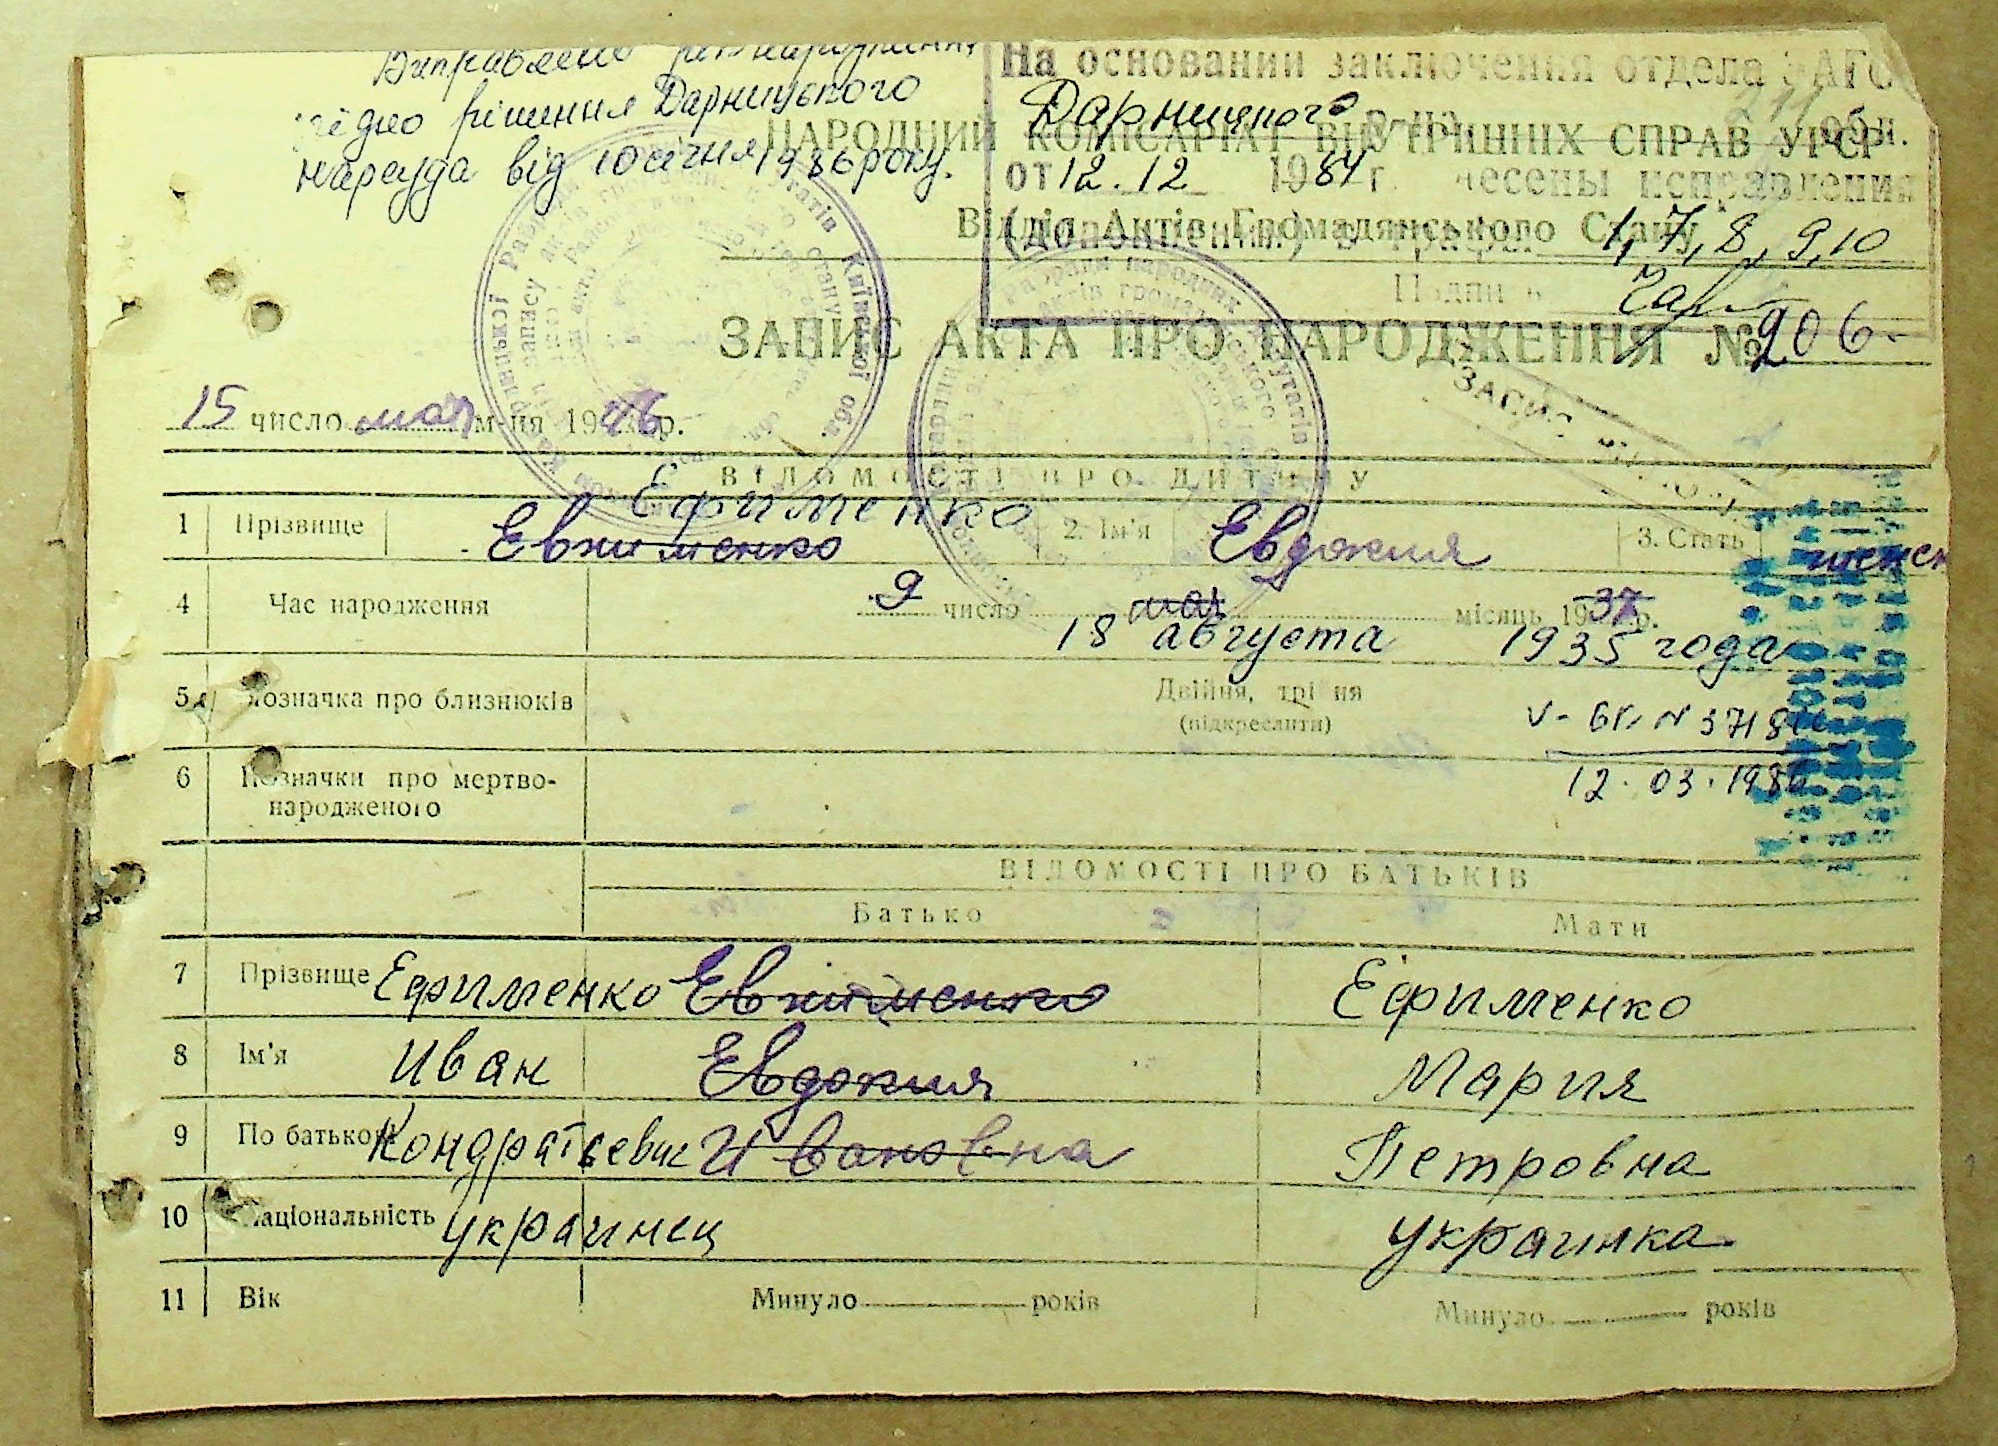 Виправлено рік народження
згідно рішення Дарницького
нарсуда від 10 січня 1986 року.
На основании заключения отдела ЗАГС
Дарницкого р-на обл.
от 12.12 1984 г. внесены исправления
(дополнения) в графы 1, 7, 8, 9, 10
Подпись
НАРОДНИЙ КОМІСАРІАТ ВНУТРІШНІХ СПРАВ УРСР
Відділ Актів Громадянського Стану
ЗАПИС АКТА ПРО НАРОДЖЕННЯ № 206
15 число мая м-ця 1946 р.
ВІДОМОСТІ ПРО ДИТИНУ
Ефименко
1 Прізвище Евхименко 2. Ім'я Евдокия 3. Стать женск
4 Час народження 9 число мая місяць 1937 р.
18 августа 1935 года
5 Позначка про близнюків Двійня, трійня
(підкреслити)
V-БК № 3718
12.03.1986
6 Позначки про мертво-
народженого
ВІДОМОСТІ ПРО БАТЬКІВ
Батько Мати
7 Прізвище Ефименко Евхименко Ефименко
8 Ім'я Иван Евдокия Мария
9 По батькові Кондратьевич Ивановна Петровна
10 Національність украинец украинка
11 Вік Минуло років Минуло років